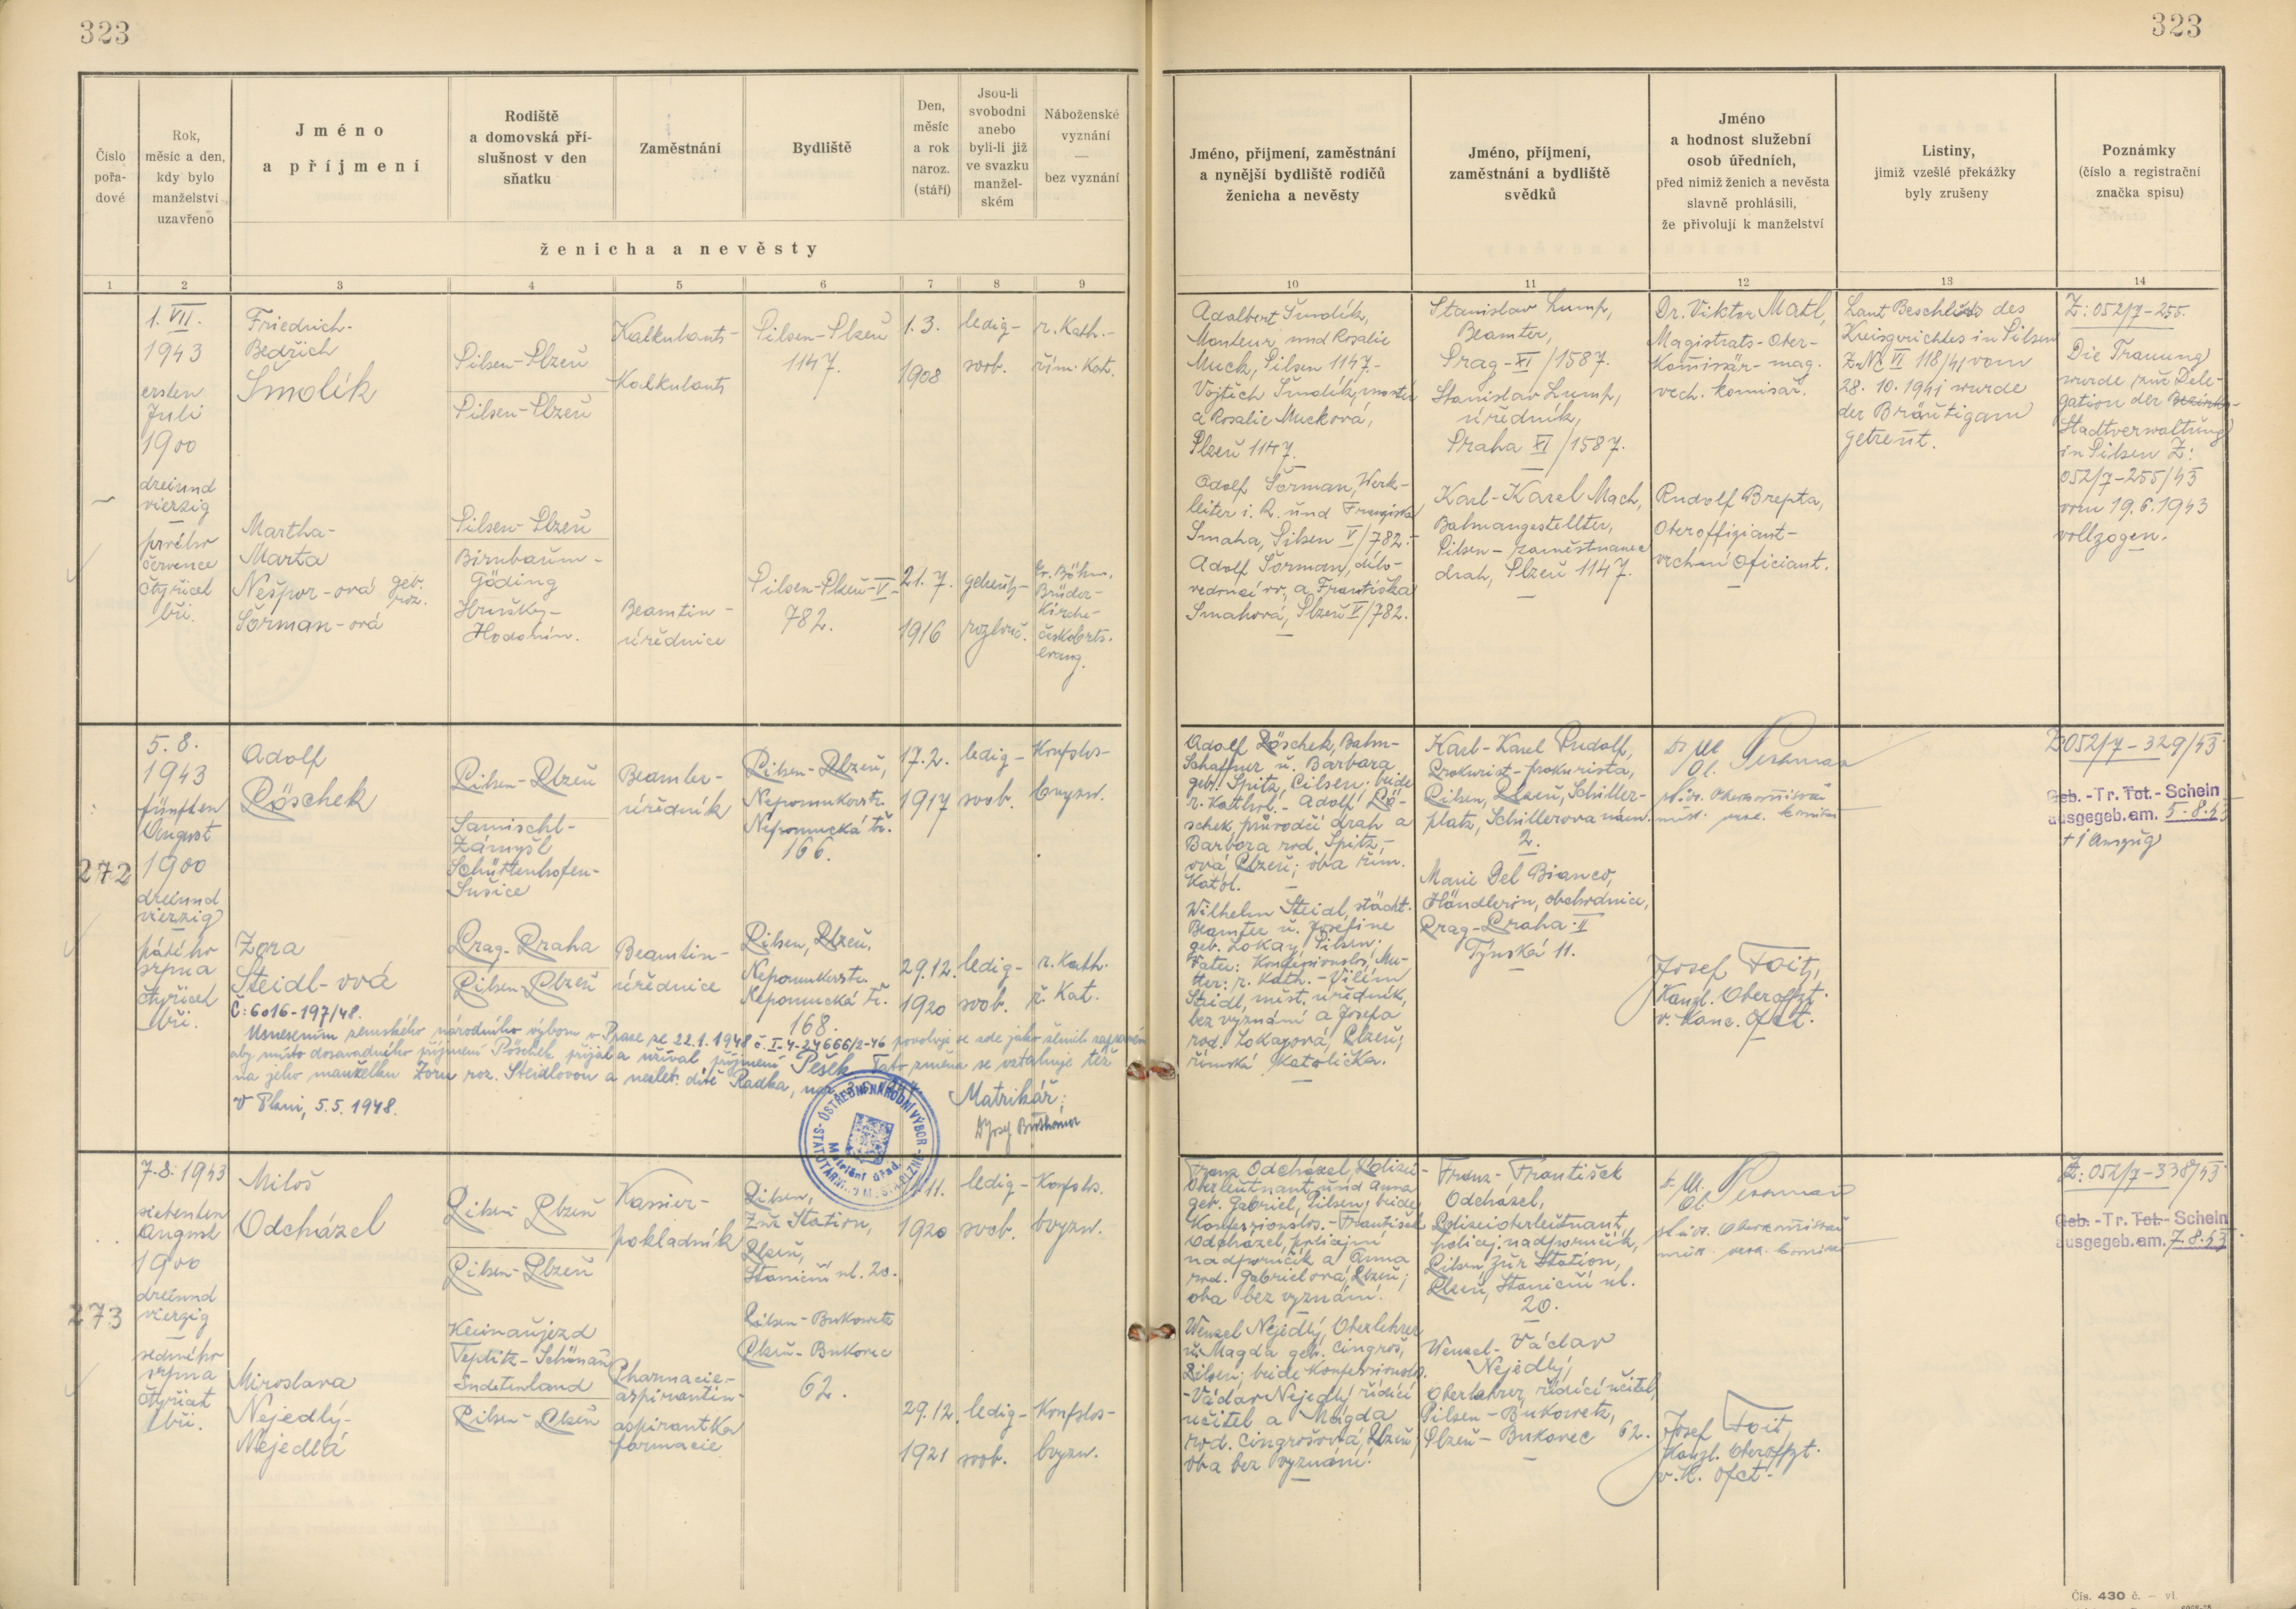 323
323
Číslo pořadové
Rok, měsíc a den, kdy bylo manželství uzavřeno
Jméno a příjmení
Rodiště a domovská příslušnost v den sňatku
Zaměstnání
Bydliště
Den, měsíc a rok naroz. (stáří)
Jsou-li svobodni anebo byli-li již ve svazku manželském
Náboženské vyznání — bez vyznání
ženicha a nevěsty
Jméno, příjmení, zaměstnání a nynější bydliště rodičů ženicha a nevěsty
Jméno, příjmení, zaměstnání a bydliště svědků
Jméno a hodnost služební osob úředních, před nimiž ženich a nevěsta slavně prohlásili, že přivolují k manželství
Listiny, jimiž vzešlé překážky byly zrušeny
Poznámky (číslo a registrační značka spisu)
1 2 3 4 5 6 7 8 9 10 11 12 13 14
1. VII.
1943
ersten
Juli
1900
dreiund
vierzig
prvého
července
čtyřicet
tři.
Friedrich-
Bedřich
Šmolík
Pilsen-Plzeň
Pilsen-Plzeň
Kalkulant-
Kalkulant
Pilsen-Plzeň
1147.
1. 3.
1908
ledig-
svob.
r. Kath.-
řím. Kat.
Martha-
Marta
Nešpor-ová geb.
roz.
Šorman-ová
Pilsen-Plzeň
Birnbaum-
Göding
Hrušky-
Hodonín.
Beamtin-
úřednice
Pilsen-Plzeň-V-
782.
21. 7.
1916
rozlouč.
Ev. Böhm.
Brüder-
Kirche-
evang.
Monteur und Rosalie
Muck, Pilsen 1147.-
a Rosalie Mucková,
Plzeň 1147.
Adolf Šorman, Werk-
leiter i. R. und Franziska
Smaha, Pilsen V/782.-
Adolf Šorman, dílo-
vedoucí vv, a Františka
Smahová, Plzeň V/782.
Stanislav Lump,
Beamter,
Prag-XI/1587.
Stanislav Lump,
úředník,
Praha XI/1587.
Karl-Karel Mach,
Bahnangestellter,
Pilsen-zaměstnanec
drah, Plzeň 1147.
Dr. Viktor Matl,
Magistrats-Ober-
Komissär-mag.
vrch. komisař.
Rudolf Brepta,
Oberoffiziant-
vrchní oficiant.
Laut Beschluss des
Kreisgerichtes in Pilsen
Z. Nc VI 118/41 vom
28. 10. 1941 wurde
der Bräutigam
getrennt.
Z: 052/7-255.
Die Trauung
wurde zur Dele-
gation der Bezirks-
Stadtverwaltung
in Pilsen Z:
052/7-255/43
vom 19. 6. 1943
vollzogen.
272
5. 8.
1943
fünften
August
1900
dreiund
vierzig
pátého
srpna
čtyřicet
tři.
Adolf
Pöschek
Pilsen-Plzeň
Samischl-
Zámyšl
Schüttenhofen-
Sušice
Beamter-
úředník
Pilsen-Plzeň,
Nepomukerstr.
Nepomucká tř.
166.
17. 2.
1917
ledig-
svob.
Konfslos-
bvyzn.
Zora
Steidl-ová
Prag-Praha
Pilsen-Plzeň
Beamtin-
úřednice
Pilsen, Plzeň,
Nepomukerstr.
Nepomucká tř.
168.
29. 12.
1920
ledig-
svob.
r. Kath.
ř. Kat.
Č: 6016-197/48.
Usnesením zemského národního výboru v Praze ze 22.1.1948 č. I-4-24666/2-46 povoluje se zde jako ženich zapsanému
aby místo dosavadního příjmení Pöschek přijal a užíval příjmení Pešek. Tato změna se vztahuje též
na jeho manželku Zoru roz. Steidlovou a nezlet. dítě Radka,
V Plzni, 5.5. 1948.
Matrikář:
ÚSTŘEDNÍ NÁRODNÍ VÝBOR
Matriční úřad
Adolf Pöschek, Bahn-
Schaffner u. Barbara
geb. Spitz, Pilsen; beide
r. Kathol.- Adolf Pö-
schek, průvodčí drah a
Barbora rod. Spitz-
ová, Plzeň; oba řím.
Katol.
Wilhelm Steidl, städt.
Beamter u. Josefine
geb. Lokay, Pilsen.
Vater: Konfessionslos, Mu-
tter: r. Kath.- Vilém
Steidl, měst. úředník,
bez vyznání a Josefa
rod. Lokayová, Plzeň;
římská Katolička.
Karl-Karel Rudolf,
Prokurist-prokurista,
Pilsen, Plzeň, Schiller-
platz, Schillerova nám.
2.
Marie Del Bianco,
Händlerin, obchodnice,
Prag-Praha-II
Týnská 11.
Josef Foit,
Kanzl. Oberoffzt.
v. Kanc. Ofct.
Z 052/7-329/43.
Geb.-Tr. Tot.-Schein
ausgegeb. am. 5.8.43
+ 1 Auszug
273
7. 8. 1943
siebenten
August
1900
dreiund
vierzig
sedmého
srpna
čtyřicet
tři.
Miloš
Odcházel
Pilsen-Plzeň
Pilsen-Plzeň
Kassier-
pokladník
Pilsen,
Zur Station,
Plzeň,
Staniční ul. 20.
11.
1920
ledig-
svob.
Konfslos.
bvyzn.
Miroslava
Nejedlý-
Nejedlá
Teplitz-Schönau
Sudetenland
Pilsen-Plzeň
Pharmacie-
aspirantin-
aspirantka
farmacie
Pilsen-Bukowetz
Plzeň-Bukovec
62.
29. 12.
1921
ledig-
svob.
Konfslos-
bvyzn.
Franz Odcházel, Polizei-
Oberleutnant und Anna
geb. Gabriel, Pilsen; beide
Konfessionslos.-František
Odcházel, policejní
nadporučík a Anna
rod. Gabrielová, Plzeň;
oba bez vyznání.
Wenzel Nejedlý, Oberlehrer
u. Magda geb. Cingroš,
Pilsen; beide Konfessionslos.
-Václav Nejedlý řídící
učitel a Magda
rod. Cingrošová, Plzeň;
oba bez vyznání.
Franz-František
Odcházel,
Polizeioberleutnant,
policej. nadporučík,
Pilsen zur Station,
Plzeň, Staniční ul.
20.
Wenzel-Václav
Nejedlý,
Oberlehrer, řídící učitel,
Pilsen-Bukowetz,
Plzeň-Bukovec 62.
Josef Foit,
Kanzl. Oberoffzt.
v. K. Ofct.
Z: 052/7-338/43
Geb.-Tr. Tot.-Schein
ausgegeb. am. 7.8.43
Čís. 430 č. — vl.